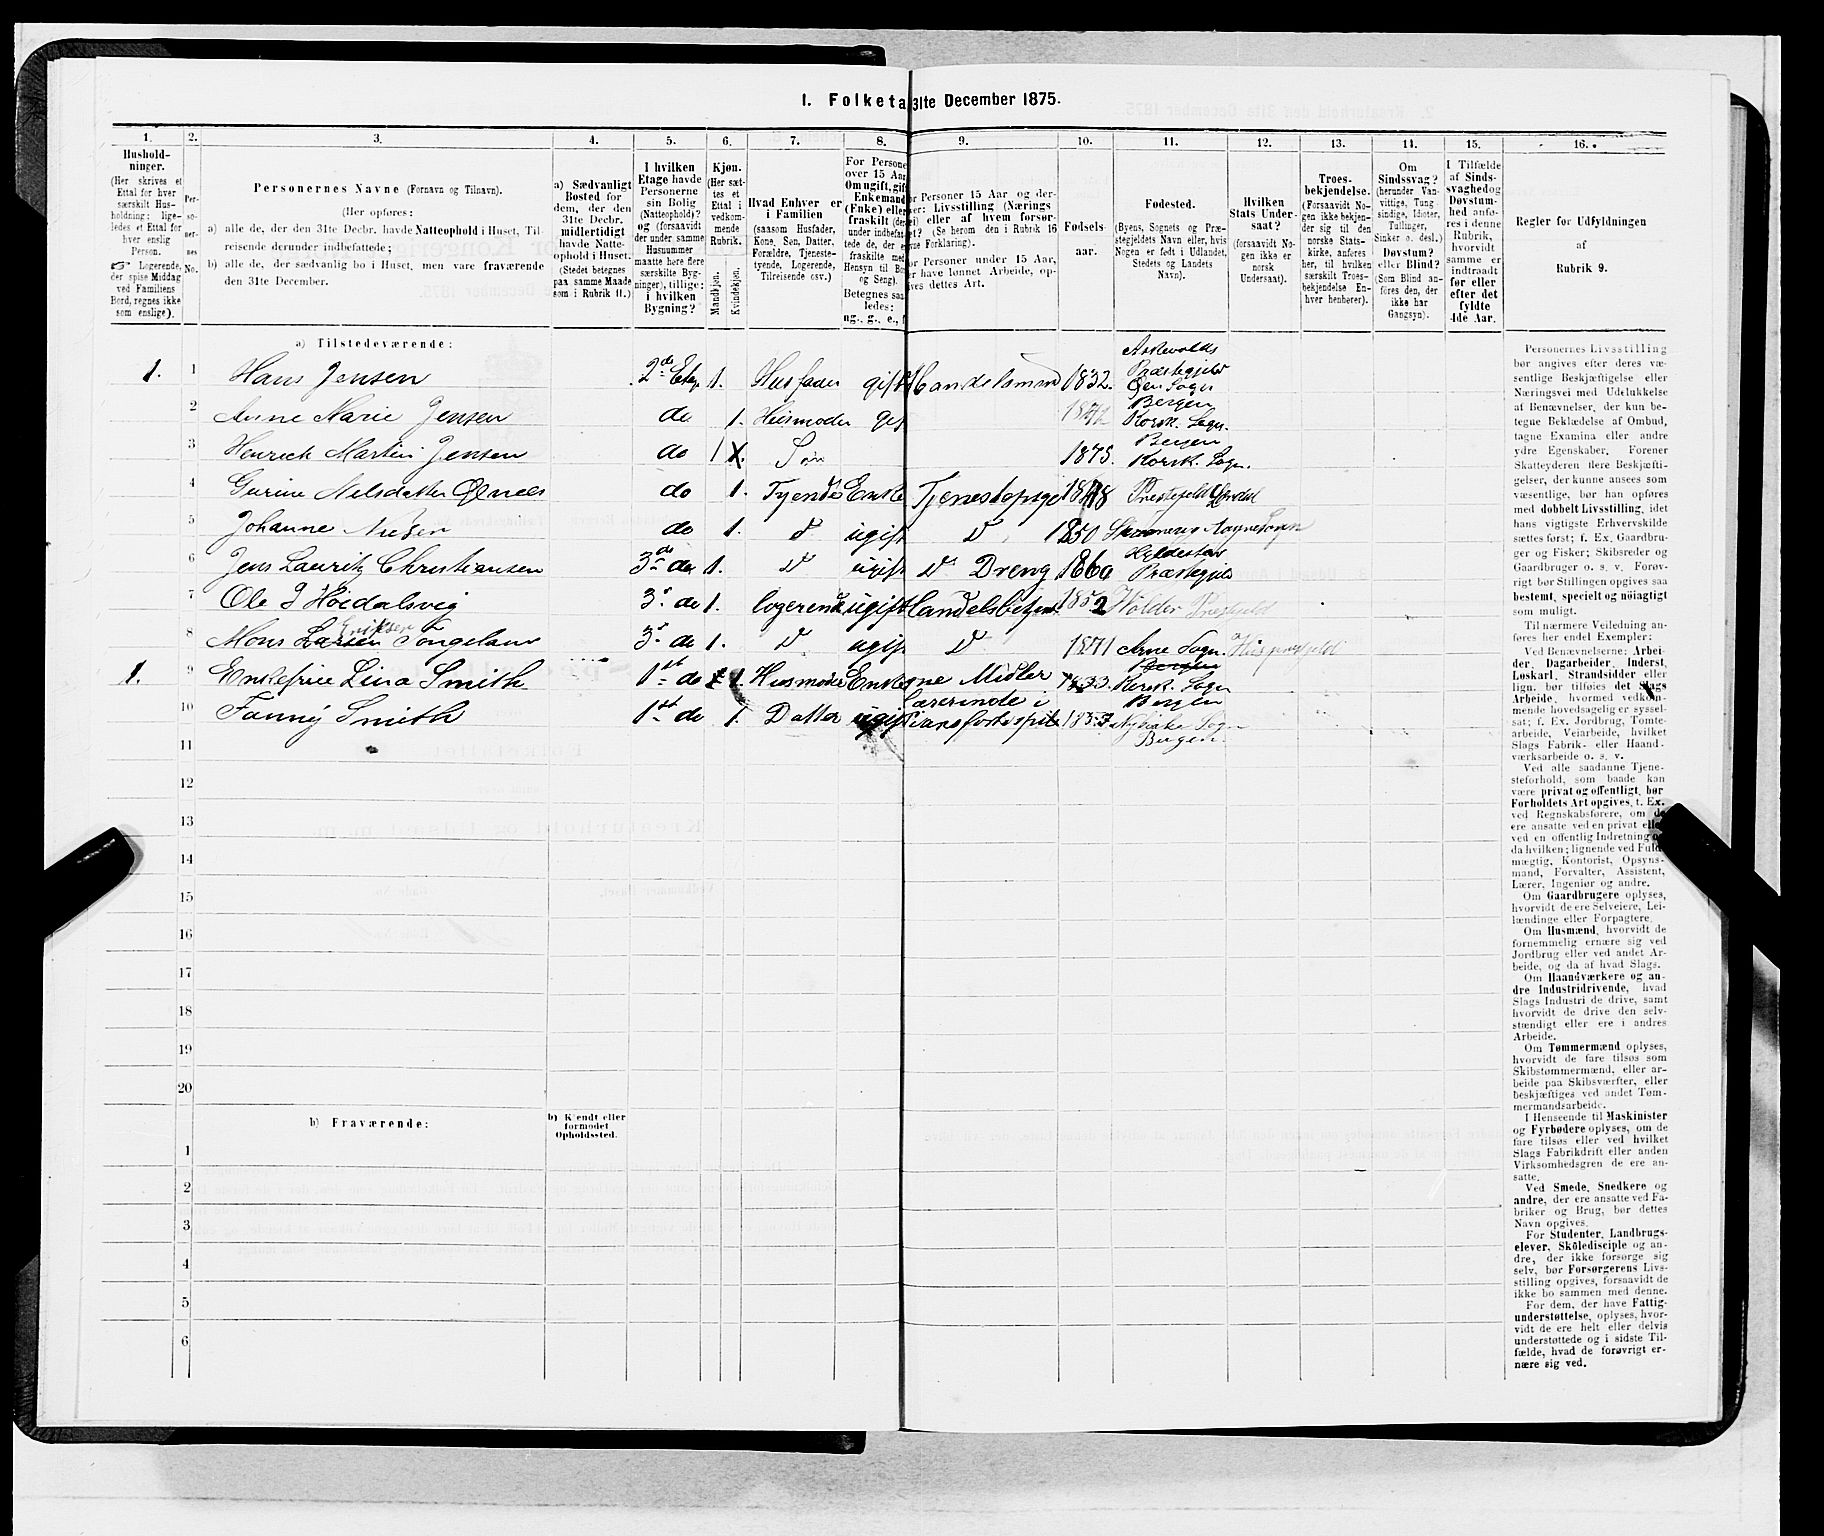 1. Folketa 31te December 1875.
1. 2. 3. 4. 5. 6. 7. 8. 9. 10. 11. 12. 13. 14. 15. 16.
Hushold-
ninger.
(Her skrives et
Ettal for hver
særskilt Hus-
holdning; lige-
ledes et Ettal for
hver enslig
Person.
☞ Logerende,
der spise Middag
ved Familiens
Bord, regnes ikke
som enslige).
Per-
so-
ner-
nes
No.
Personernes Navne (Fornavn og Tilnavn).
(Her opføres:
a) alle de, der den 31te Decbr. havde Natteophold i Huset, Til-
reisende derunder indbefattede;
b) alle de, der sædvanlig bo i Huset, men vare fraværende
den 31te December.
a) Sædvanligt
Bosted for
dem, der den
31te Decbr.
midlertidigt
havde Natte-
ophold i Huset.
(Stedet betegnes
paa samme Maade
som i Rubrik 11.)
I hvilken
Etage havde
Personerne
sin Bolig
(Natteophold)?
og (forsaavidt
der under samme
Husnummer
maatte høre flere
særskilte Byg-
ninger), tillige:
i hvilken
Bygning?
Kjøn.
(Her sæt-
tes et
Ettal i
vedkom-
mende
Rubrik.
Mandkjøn.
Kvindekjøn.
Hvad Enhver er
i Familien
(saasom Husfader,
Kone, Søn, Datter,
Forældre, Tjeneste-
tyende, Logerende,
Tilreisende osv.)
For Persone
over 15 Aar
Om ugift, gift
Enkemand
(Enke) eller
fraskilt (der
under indbefat-
tede de, der e
fraskilte med
Hensyn til Bo
og Seng).
Betegnes saa
ledes:
ug., g., e., f
or Personer 15 Aar og der-
ver: Livsstilling (Nærings
ei) eller af hvem forsør-
get? (Se herom den i Rubrik 16
ne Forklaring).
or Personer under 15 Aar,
er have lønnet Arbeide, op-
ives dettes Art.
Fødsels-
aar.
Fødested.
(Byens, Sognets og Præ-
stegjeldets Navn eller, hvis
Nogen er født i Udlandet,
Stedets og Landets
Navn).
Hvilken
Stats Under-
saat?
(forsaavidt No-
gen ikke er
norsk
Undersaat).
Troes-
bekjendelse.
(Forsaavidt No-
gen ikke bekjen-
der sig til den
norske Stats-
kirke, anføres
her, til hvilken
særskilt Troes-
bekjendelse En-
hver henhører).
Om
Sindssvag?
(herunder Van-
vittige, Tung
sindige, Idioter,
Tullinger,
Sinker o. desl.)
Døvstum?
eller Blind?
(Som Blind an-
føres den, der
ikke har
Gangsyn).
I Tilfælde
af Sinds-
svaghed og
Døvstum-
hed anfø-
res i denne
Rubrik,
hvorvidt
samme er
indtraadt
før eller
efter det
fyldte
4de Aar.
Regler for Udfyldningen
af
Rubrik 9.
a) Tilstedeværende:
1. 1 Hans Jensen 2den Etage 1. Husfader gift Handelsmand 1832. Askevolds Præstegjeld Øen Sogn
2 Anne Marie Jensen do 1. Husmoder gift 1842 Bergen Korsk. Sogn.
3 Henrich Martin Jensen do 1 Søn 1875. Bergen Korsk. Sogn.
4 Gurine Nilsdatter do 1. Tyende Enke 1848
5 Johanne do 1. ugift 1850
6 Jens Lauritz Christiansen 3de do 1. ugift Dreng 1860 Præstegjeld
7 Ole J Høidalsvig 3. do 1. logerende ugift Handelsbetjent 1852 Holder Prestegjeld
8 Mons Eriksen Tongeland 3. do 1. ugift Arne Sogn. Hus prestegjeld
1. 9 Enkefrue Lina Smith 1st do 1. Husmoder Enke Midler 1833. Korsk. Sogn Bergen
10 Fanny Smith 1st do 1. Datter ugift Lærerinde i Pianofortespil 1853 Nykirke Sogn Bergen.
11
12
13
14
15
16
17
18
19
20
b) Fraværende:
b) Kjendt eller
formodet
Opholdssted.
1
2
3
4
5
6
Personernes Livsstilling
bør angives efter deres væ-
sentlige Beskjæftigelse eller
Næringsvei med Udelukkelse
af Benævnelser, der kun be-
tegne Beklædelse af Ombud,
tagne Examina eller andre
ydre Egenskaber. Forener
Skatteyderen flere Beskjæfti-
gelser, der kunne ansees som
væsentlige, bør han opføres
med dobbelt Livsstilling, idet
hans vigtigste Erhvervskilde
sættes først; f. Ex. Gaardbru-
ger og Fisker; Skibsreder og
Gaardbruger o. s. v. Forøv-
rigt bør Stillingen opgives saa
bestemt, specielt og nøiagtigt
som muligt.
Til nærmere Veiledning an-
føres her endel Exempler:
Ved Benævnelserne: Arbei-
der, Dagarbeider, Inderst,
Løskarl, Strandsidder eller
lign. bør tilføies det Slags
Arbeide, hvormed vedkom-
mende hovedsagelig er syssel-
sat; f. Ex. Jordbrug, Tomte-
arbeide, Veiarbeide, hvilket
Slags Fabrik- eller Haand-
værksarbeide o. s. v.
Ved alle saadanne Tjene-
steforhold, som baade kan
være privat og offentligt, bør
Forholdets Art opgives, t. Ex.
ved Regnskabsførere, om de
ere ansatte ved en privat elle
ved en offentlig Indretning og
da hvilken; lignende ved Fuld-
mægtig, Kontorist, Opsyns-
mand, Forvalter, Assistent,
Lærer, Ingeniør og andre.
Om Gaardbrugere oplyses,
hvorvidt de ere Selveiere, Lei-
lændinge eller Forpagtere.
Om Husmænd, hvorvidt de
fornemmelig ernære sig ved
Jordbrug eller ved andet Ar-
beide, og da af hvad Slags.
Om Haandværkere og an-
dre Industridrivende, hvad
Slags Industri de drive, samt
hvorvidt de drive den selv-
stændigt eller ere i andres
Arbeide.
Om Tømmermænd oplyses,
hvorvidt de fare tilsøs som
Skibstømmermænd, eller ar-
beide paa Skibsværfter, eller
beskjæftiges ved andet Tøm-
mermandsarbeide.
I Henseende til Maskinister
og Fyrbødere oplyses, om de
fare tilsøs eller ved hvilket
Slags Fabrikdrift eller anden
Virksomhedsgren de ere an-
satte.
Ved Smede, Snedkere og
andre, der ere ansatte ved Fa-
briker og Brug, bør dettes
Navn opgives.
For Studenter, Landbrugs-
elever, Skoledisciple og an-
dre, der ikke forsørge sig
selv, bør Forsørgerens Livs-
stilling opgives, forsaavidt de
ikke bo sammen med denne.
For dem, der have Fattig-
understøttelse, oplyses, hvor-
vidt de ere helt eller delvis
understøttede og i sidste Til-
fælde, hvad de forøvrigt er-
nære sig ved.